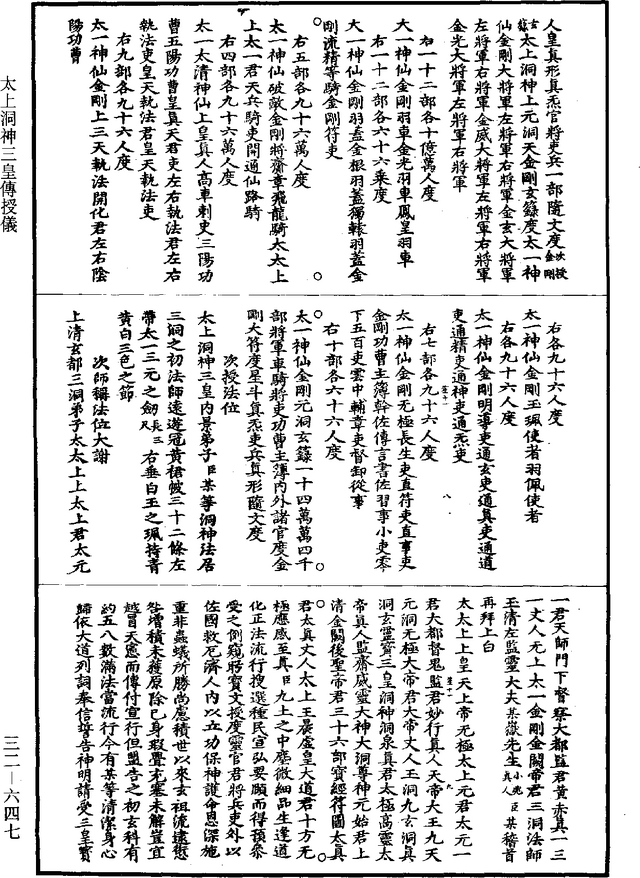 人皇真形真炁官將吏兵一部隨文度次授金剛
玄籙太上洞神上元洞天金剛玄籙度太一神
仙金剛大將軍左將軍右將軍金玄大將軍
左將軍右將軍金威大將軍左將軍右將軍
金光大將軍左將軍右將軍
右一十二部各十億萬人度
大一神仙金剛羽車金光羽車鳳皇羽車
右一十二部各六十六乘度
大一神仙金剛羽蓋金根羽蓋獨轅羽蓋金
剛流精等騎金剛符吏
右五部各九十六萬人度
太一神仙破敵金剛將齋章飛龍騎太太上
上太一君天兵騎吏開通仙路騎
右四部各九十六萬人度
太一太清神仙上皇真人高車刺史三陽功
曹五陽功曹皇真天君吏左右執法君左右
執法吏皇天執法君皇天執法吏
右九部各九十六人度
太一神仙金剛上三天執法開化君左右陰
陽功曹
右各九十六人度
太一神仙金剛玉珮使者羽佩使者
右各九十六人度
太一神仙金剛明導吏通玄吏通真吏通道
吏通精吏通神吏通炁吏
右七部各九十六人度
太一神仙金剛无極長生吏直符吏直事吏
金剛功曹主簿幹佐傳言書佐習事小吏零
下五百吏雲中輔章吏督卸從事
右十部各六十六人度
太一神仙金剛元洞玄籙一十四萬萬四千
部將軍車騎將吏功曹主薄內外諸官度金
剛大符度星斗真炁吏兵真形隨文度
次授法位
太上洞神三皇內景弟子臣某等洞神法居
三洞之初法師遠遊冠黃裙帔三十二條左
帶太一三元之劒長三尺右垂白玉之珮持青
黃白三色之節
次師稱法位大謝
上清玄都三洞弟子太太上上太上君太元
一君天師門下督察大都監君黃赤真一三
一丈人无上太一金剛金闕帝君三洞法師
玉清左監靈大夫某嶽先生小兆真人臣某稽首
再拜上白
太太上上皇天上帝元極太上元君太元一
君大都督鬼監君妙行真人天帝大王九天
元洞无極大帝君大帝丈人王洞九玄洞真
洞玄靈寶三皇洞神洞泉真君太極高靈太
帝真人監齋威靈大神大洞尊神元始君上
清金闕後聖帝君三十六部寶經符圖太真
君太真丈人太上王晨虛皇大道君十方无
極應感至真臣九土之中塵微細品生逢道
化正法流行搜選種民宣弘要願而得預參
受之側窺緣寶文授度靈官君將兵吏外以
佐國救厄濟人內以立功保神護命恩深施
重非蟲蟻所勝尚慮積世以來玄祖流遠愆
咎增積未獲原除已身瑕舋充塞未解豈宜
越冒天憲而傳付宣行但盟告之初玄科有
約五八數滿法當流行今有某等清潔身心
歸依大道列詞奉信誓告神明請受三皇寶
太上洞神三皇傳授儀
三二—六四七